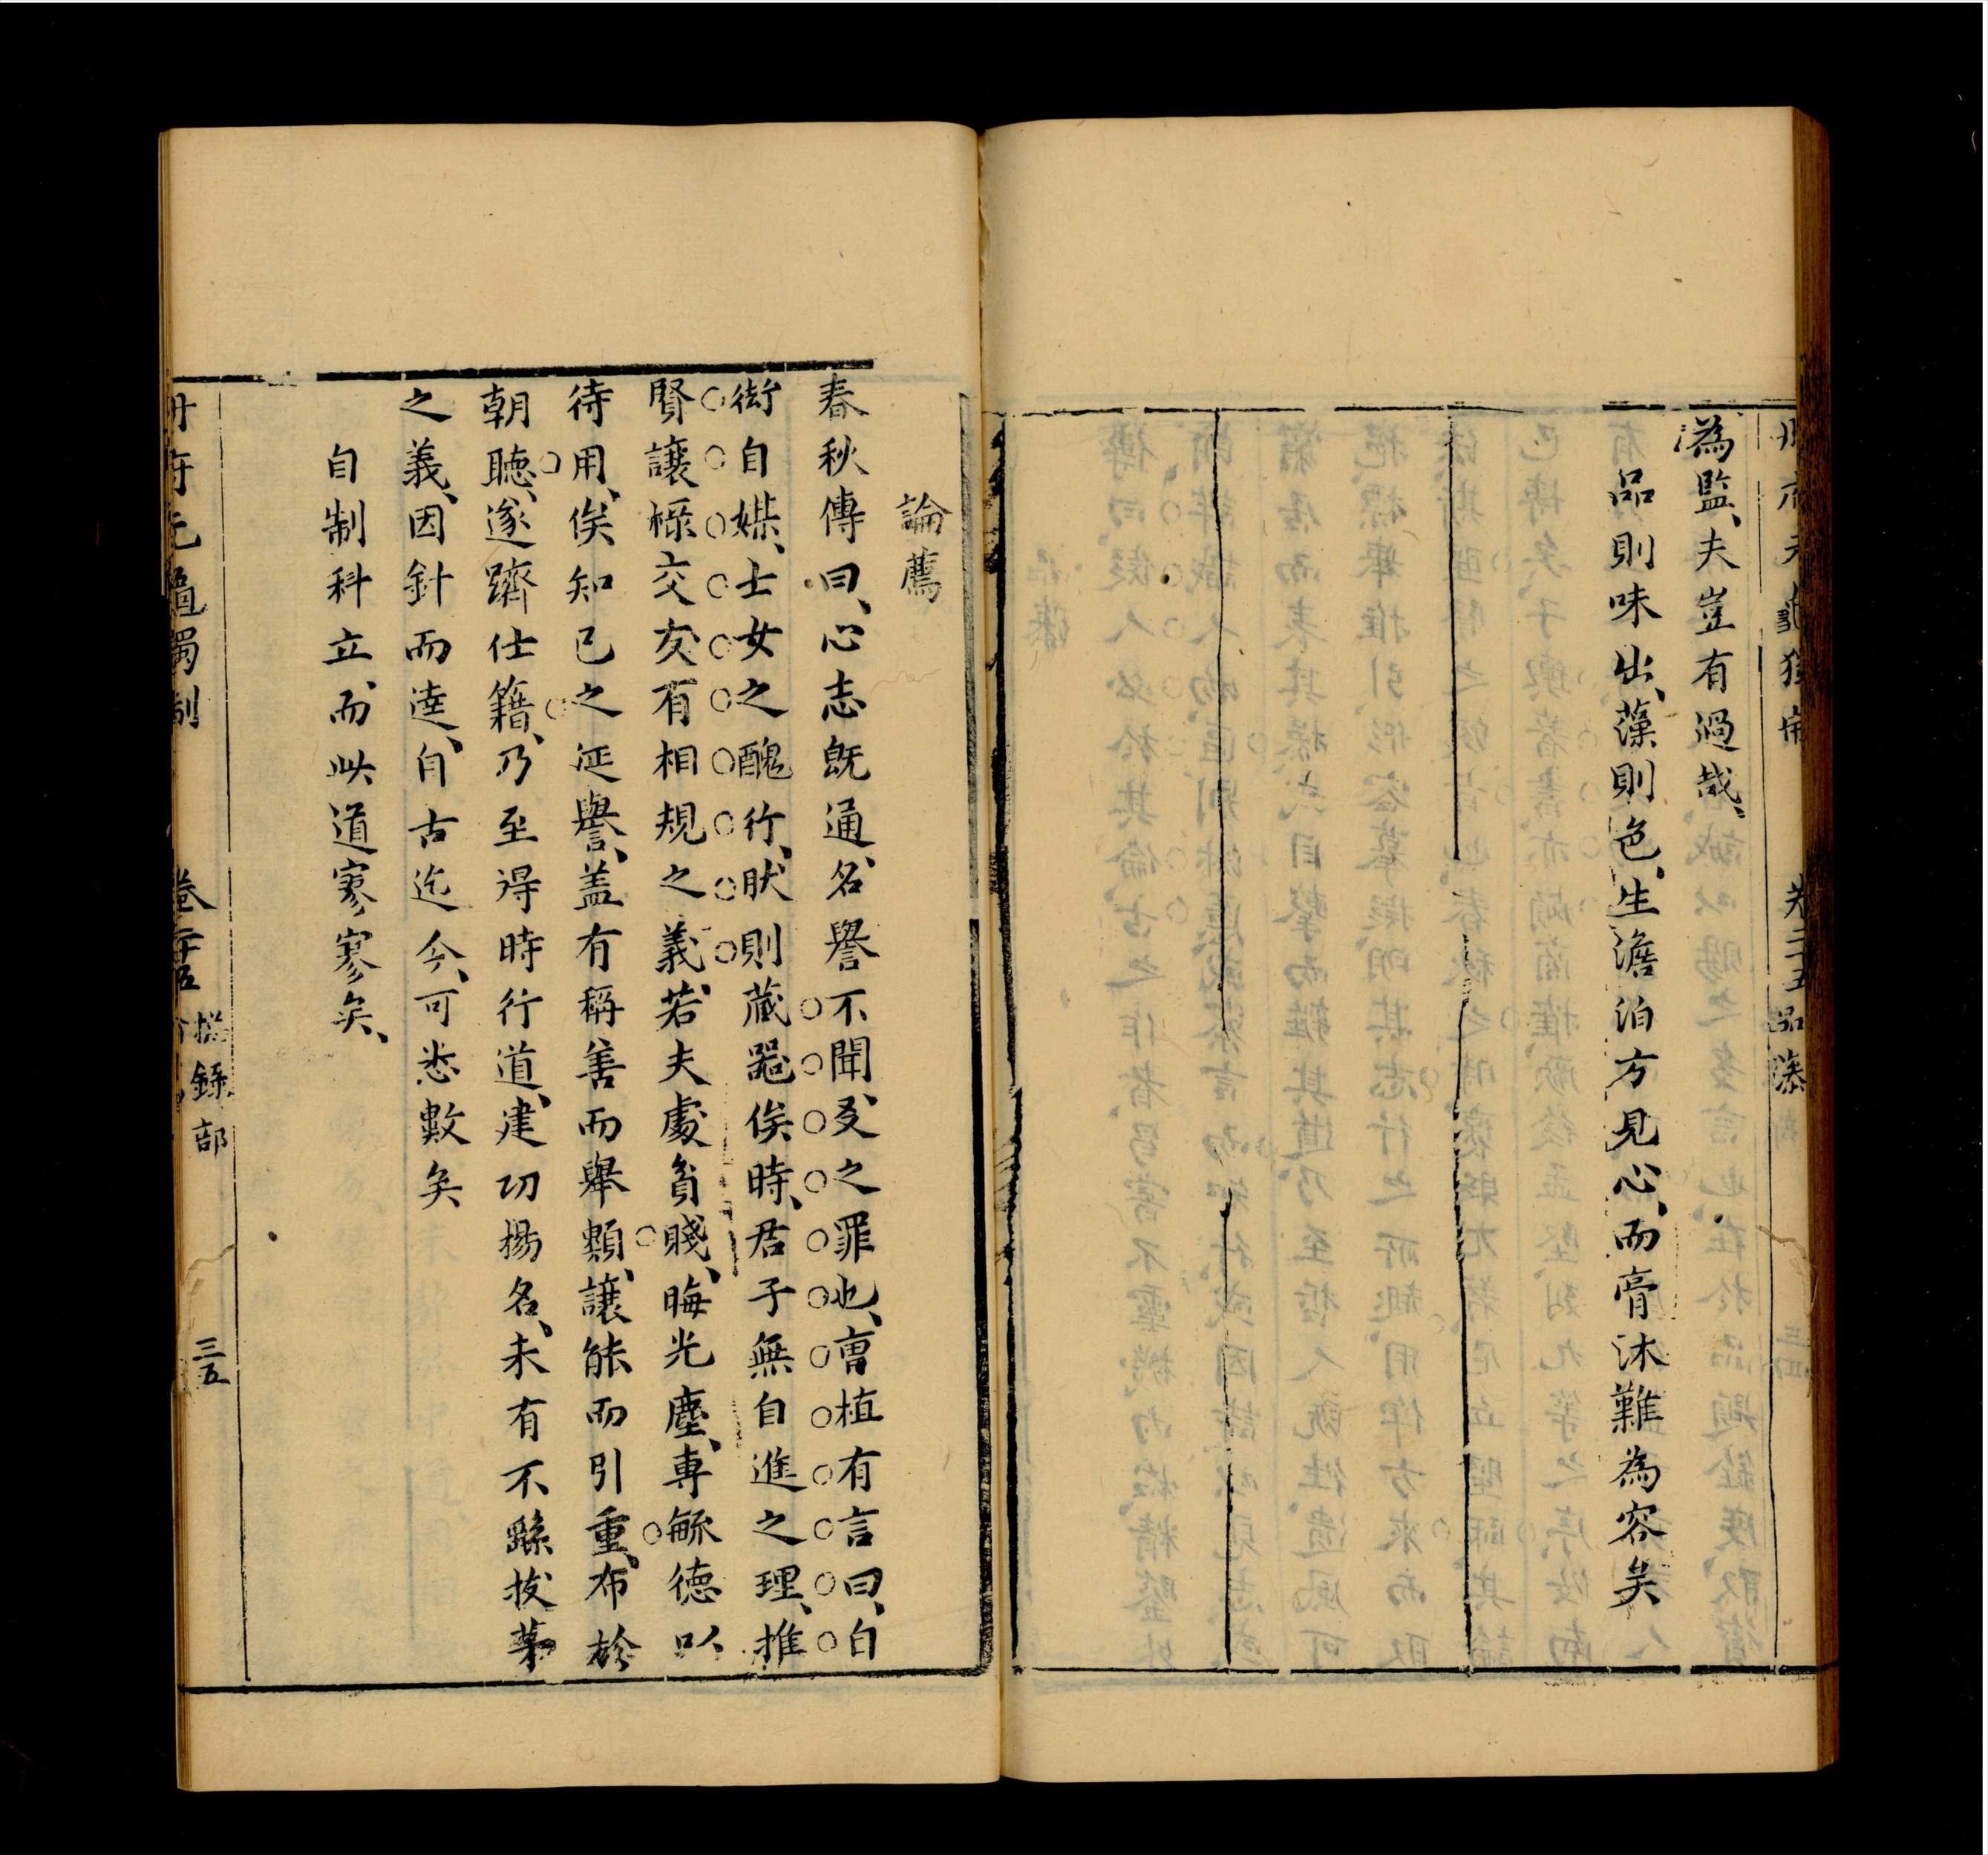 為監、夫豈有過哉、
品則味出、藻則色、生澹泊方見心、而膏沐難為容矣
卷二十五 品藻
論薦
春秋傳曰、心志既通、名譽不聞、友之罪也、曹植有言曰、自
衒自媒、士女之醜行、然則蔵器俟時、君子無自進之理、推
賢讓祿、交友有相規之義、若夫處貧賤、晦光塵、專龢德以
待用、俟知已之延譽、盖有稱善而舉類、讓能而引重、布於
朝聽、遂躋仕籍、乃至得時行道、建功揚名、未有不繇拔茅
之義、因針而達、自古迄今、可悉數矣
自制科立、而此道寥寥矣、
冊府元龜獨制 卷二十五 掾錄部 三五